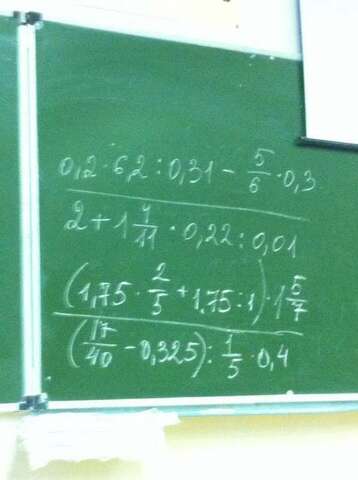 0,2 · 6,2 : 0,31 − 5/6 · 0,3
2 + 1 4/11 · 0,22 : 0,01
(1,75 · 2/5 + 1,75 : 1) · 1 5/7
(17/40 − 0,325) : 1/5 · 0,4